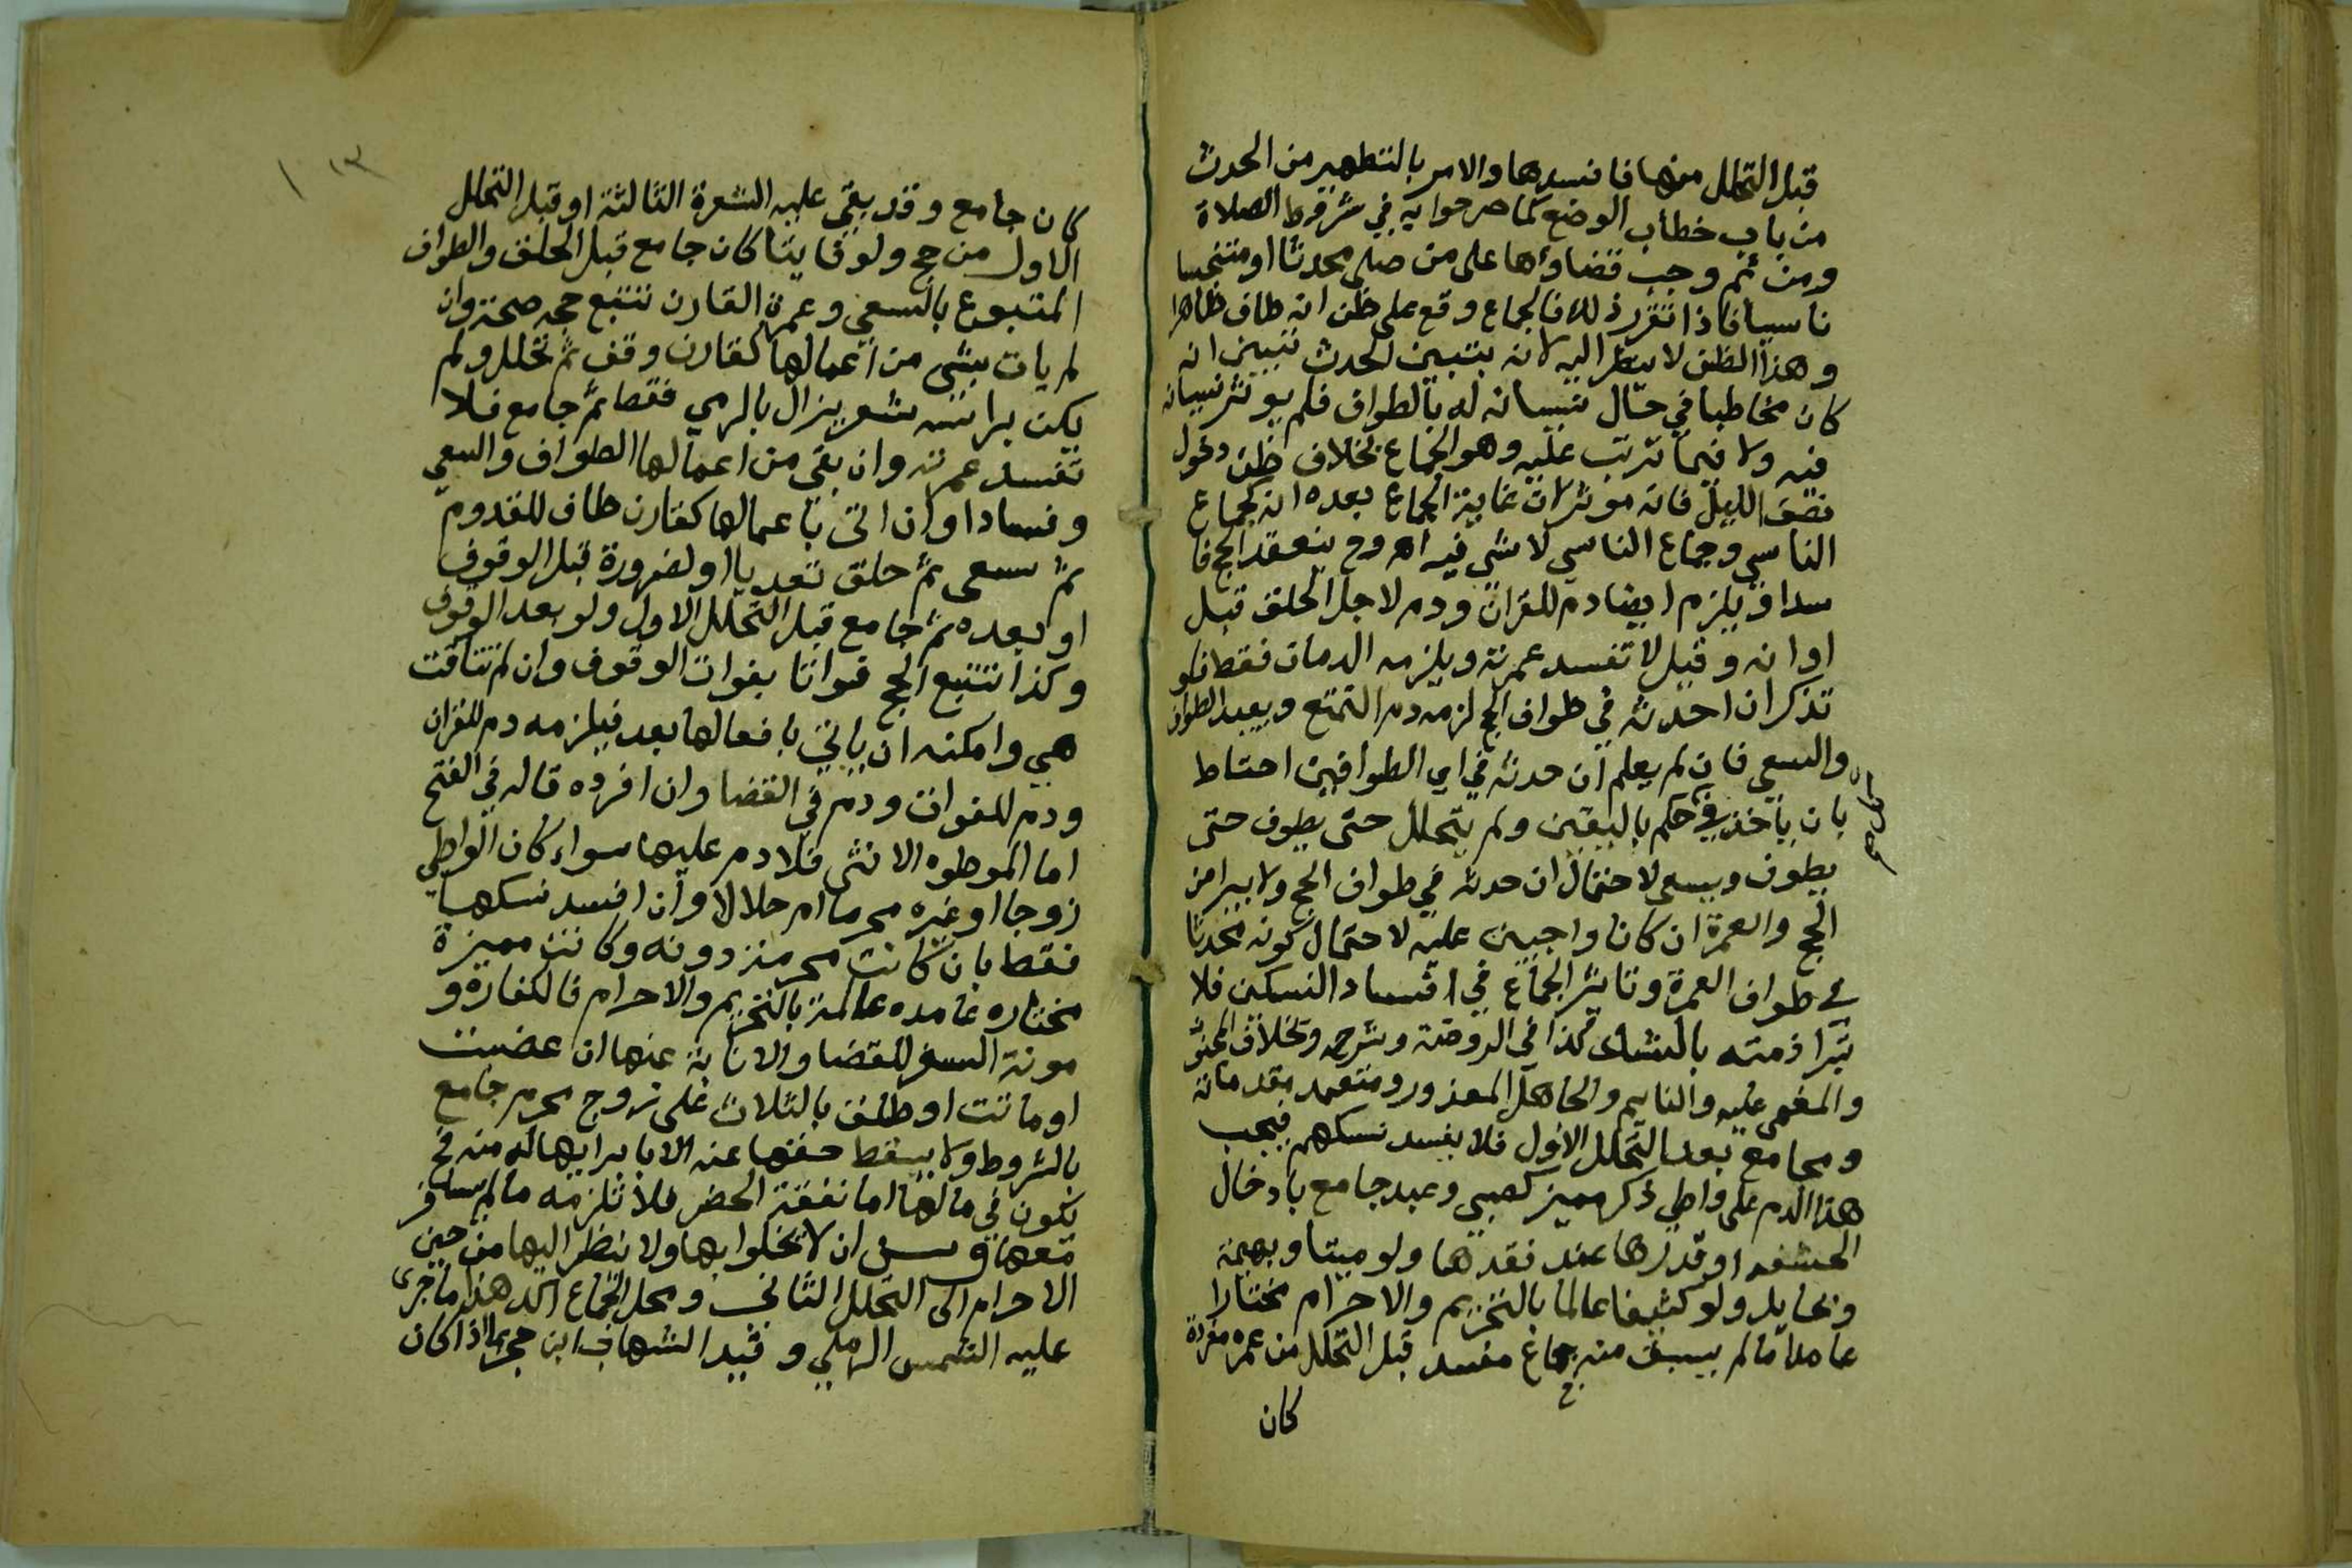 قبل التحلل منها فافسدها والامر بالتطهير من الحدث
من باب خطاب الوضع كما صرحوا به في شروط الصلاة
ومن ثم وجب قضاؤها على من صلى محدثا او متنجسا
ناسيا فاذا تقرر ذلك فالجماع وقع على ظن انه طاف طاهرا
وهذا الظن لا ينظر اليه لانه بتبين الحدث تبين انه
كان مخاطبا في حال نسيانه له بالطواف فلم يوثر نسيانه
فيه ولا فيما ترتب عليه وهو الجماع بخلاف ظن دخول
نصف الليل فانه موثر لان غاية الجماع بعده انه كجماع
الناسي وجماع الناسي لا شي فيه اه وح ينعقد الحج فا
سدا ويلزم ايضا دم للقران ودم لاجل الحلق قبل
اوانه وقيل لا تفسد عمرته ويلزمه الدمان فقط فلو
تذكر ان احدثه في طواف الحج لزمه دم التمتع ويعيد الطواف
والسعي فان لم يعلم ان حدثه في اي الطوافين احتاط
بان ياخذ في حكم باليقين ولم يتحلل حتى يطوف حتى
يطوف ويسعى لاحتمال ان حدثه في طواف الحج ولا يبرا من
الحج والعمرة ان كانا واجبين عليه لاحتمال كونه محدثا
في طواف العمرة وتاثير الجماع في افساد النسكين فلا
تبرا ذمته بالشك كذا في الروضة وشرحه وبخلاف المجنون
والمغمى عليه والنايم والجاهل المعذور ومتعمد مقدماته
ومجامع بعد التحلل الاول فلا يفسد نسكهم فيجب
هذا الدم على واطي ذكر مميز كصبي وعبد جامع بادخال
الحشفه او قدرها عند فقدها ولو ميتا وبهيمة
وبحايل ولو كثيفا عالما بالتحريم والاحرام مختارا
عامدا ما لم يسبق منه جماع مفسد قبل التحلل من عمره مفردة
كان
كان جامع وقد بقي عليه الشعرة الثالثة او قبل التحلل
الاول من حج ولو فايتا كان جامع قبل الحلق والطواف
المتبوع بالسعي وعمرة القارن تتبع حجه صحة وان
لم يات بشي من اعمالها كقارن وقف ثم تحلل ولم
يكن براسه شعر يزال بالرمي فقط ثم جامع فلا
تفسد عمرته وان بقي من اعمالها الطواف والسعي
وفسادا وان اتى باعمالها كقارن طاف للقدوم
ثم سعى ثم حلق تعديا او لضرورة قبل الوقوف
او بعده ثم جامع قبل التحلل الاول ولو بعد الوقوف
وكذا تتبع الحج فواتا بفوات الوقوف وان لم تتاقت
هي وامكنه ان ياتي بافعالها بعد فيلزمه دم للقران
ودم للفوات ودم في القضا وان افرده قاله في الفتح
اما الموطوه الانثى فلا دم عليها سواء كان الواطي
زوجا او غيره محرما ام حلالا وان افسد نسكها
فقط بان كانت محرمة دونه وكانت مميزة
مختاره عامده عالمة بالتحريم والاحرام فالكفارة و
مونة السفر للقضا والانابة عنها ان عضبت
او ماتت او طلقت بالثلاث على زوج محرم جامع
بالشروط ولا يسقط حقها عنه الا بابرايها له منه فح
تكون في مالها اما نفقة الحضر فلا تلزمه ما لم يسافر
معها وسن ان لا يخلوا بها ولا ينظر اليها من حين
الاحرام الى التحلل الثاني ومحل الجماع اكد هذا ما جرى
عليه الشمس الرملي وقيد الشهاب ابن حجر بما اذا كان